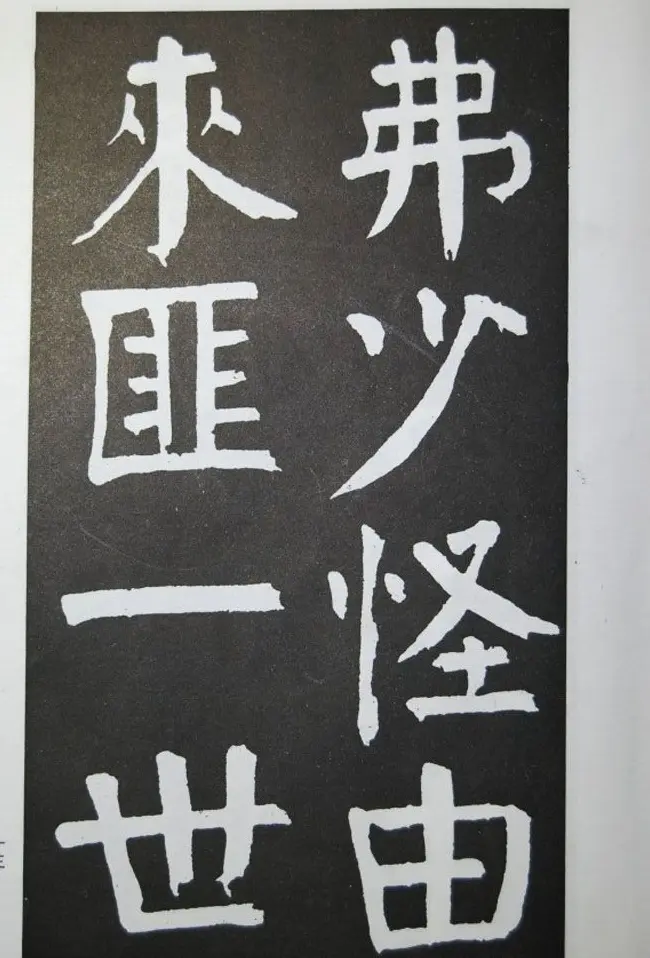 弗少怪由
來匪一世